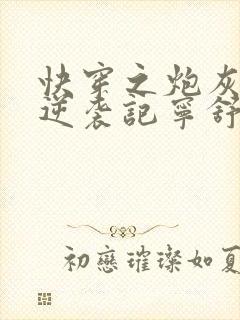 快穿之炮灰
逆袭記寧舒
初戀璀璨如夏